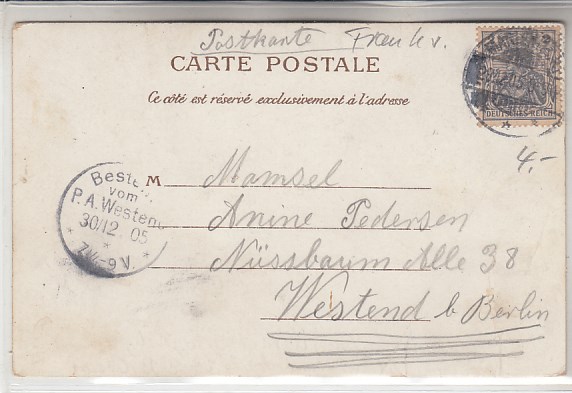 Postkarte
CARTE POSTALE
Ce côté est réservé exclusivement à l'adresse
DEUTSCHES REICH
4.-
Bestellt
vom
P.A. Westend
30/12 05
7¼-9V.
M Mamsel
Anine Pedersen
Nüssbaum Alle 38
Westend b Berlin